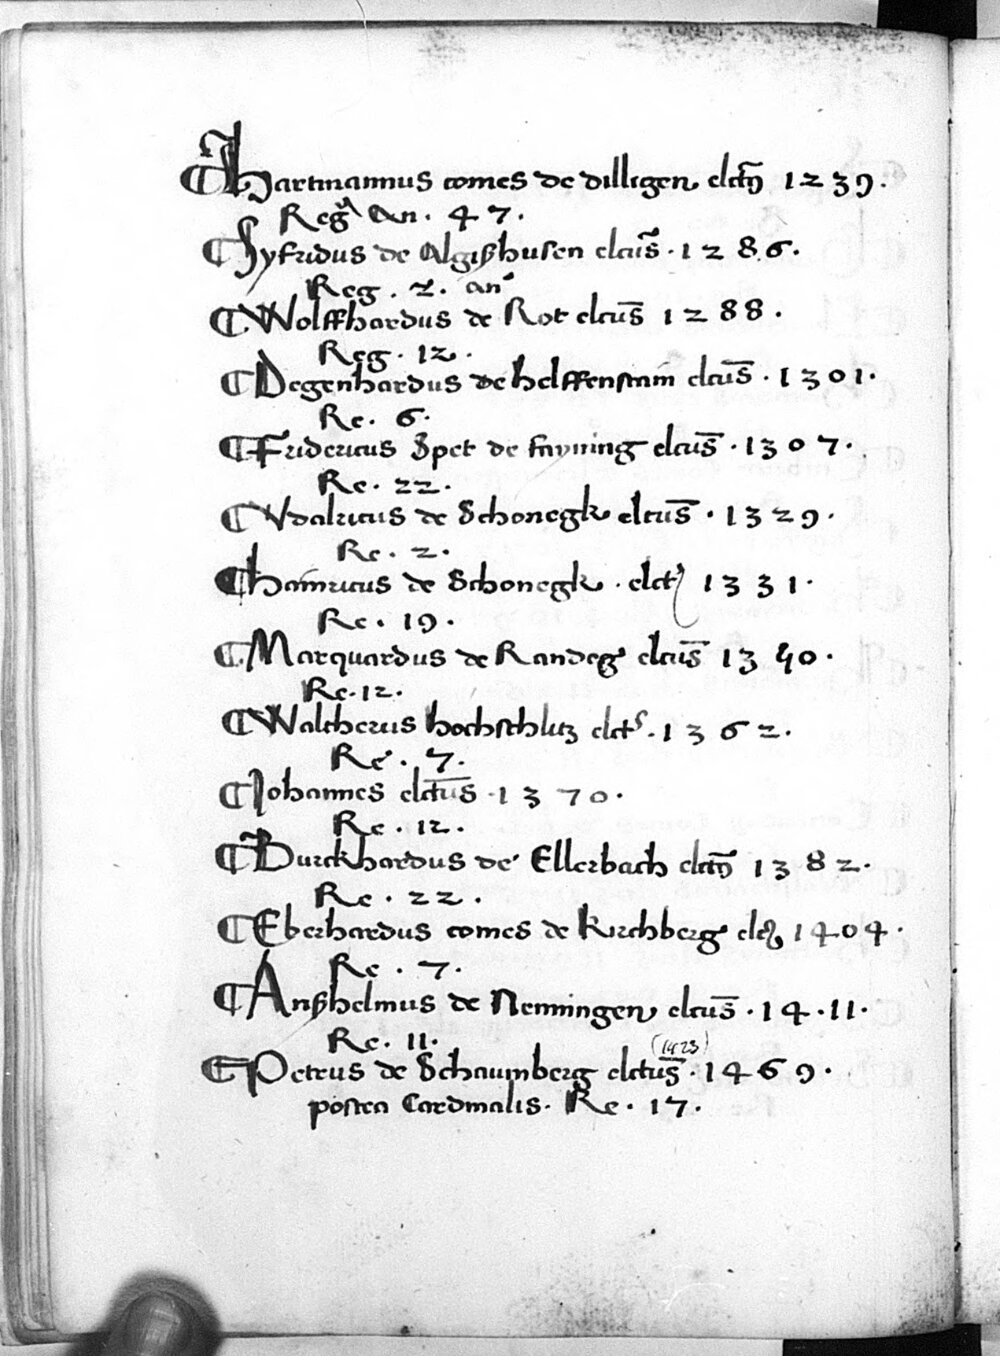 ¶ Hartmannus comes de dilligen elct9 1239.
Reg^a an. 47.
¶ Syfridus de Algißhusen elcūs. 1286.
Reg. 2. an
¶ Wolffhardus de Rot elcūs 1288.
Reg. 12.
¶ Degenhardus de helffenstain elcūs. 1301.
Re. 6.
¶ Fridericus Spet de fayming elcūs. 1307.
Re. 22.
¶ Vdalricus de Schonegk elcūs. 1329.
Re. 2.
¶ hainricus de Schonegk. elct9 1331.
Re. 19.
¶ Marquardus de Randeg elcūs 1340.
Re. 12.
¶ Waltherus hochschlitz elcts. 1362.
Re. 7.
¶ Johannes elctūs. 1370.
Re. 12.
¶ Burckhardus de Ellerbach elct9 1382.
Re. 22.
¶ Eberhardus comes de kirchberg 1404.
Re. 7.
¶ Anßhelmus de Nenningen elcūs. 14.11.
Re. 11.
(1423)
¶ Petrus de Schaumberg elctūs. 1469.
postea Cardinalis. Re. 17.